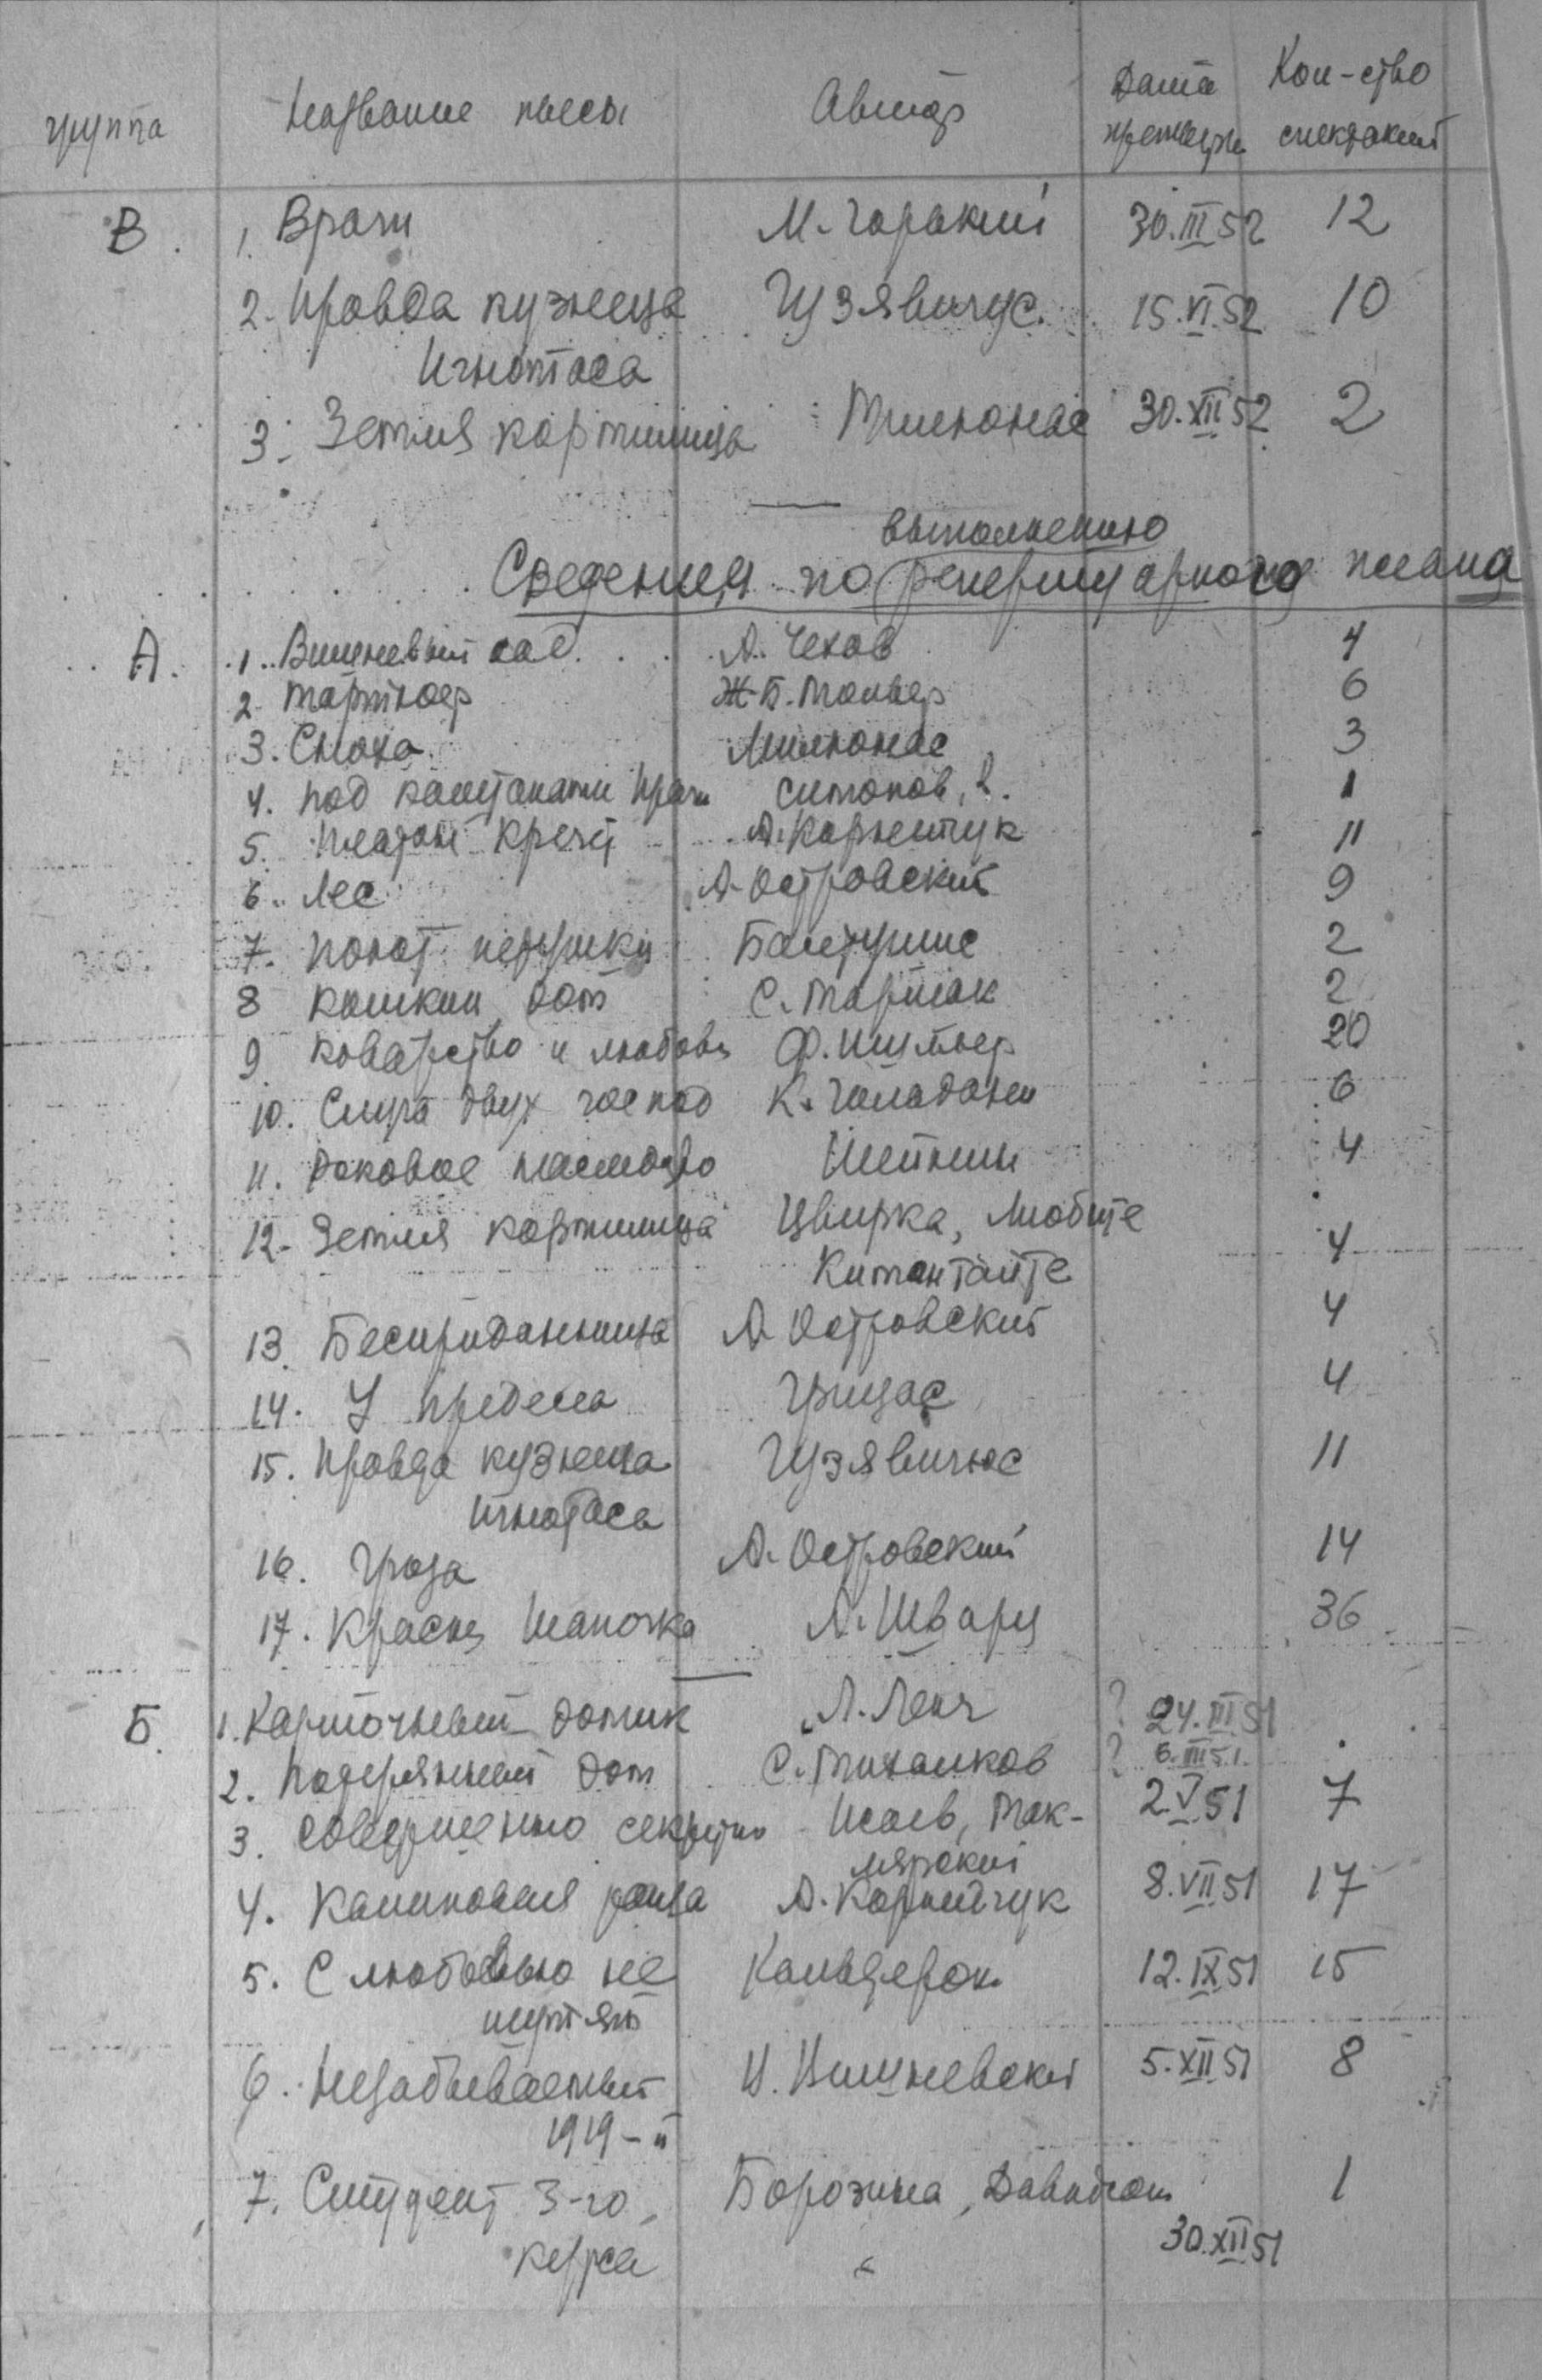 группа Название пьесы Автор Дата премьеры Кол-ство спектаклей
В. 1. Враги М. Горький 30.III 52 12
2. Правда кузнеца Гузявичус. 15.VI.52 10
Игнотаса
3. Земля кормилица Милюнас 30.XII 52 2
выполнению
Сведения по репертуарного плана
А. 1. Вишневый сад А. Чехов 4
2. Тартюф Ж-Б. Мольер 6
3. Сноха Милюнас 3
4. Под каштанами Праги Симонов, 1
5. Платон Кречет А. Корнейчук 11
6. Лес А. Островский 9
7. Поют петушки Балтушис 2
8 Кошкин дом С. Маршак 2
9 Коварство и любовь Ф. Шиллер 20
10. Слуга двух господ К. Гольдони 6
11. Роковое наследство Шейнин 4
12. Земля кормилица Цвирка, Любите
Кимантайте 4
13. Бесприданница А. Островский 4
14. У предела Грицас 4
15. Правда кузнеца Гузявичюс 11
Игнотаса
16. Гроза А. Островский 14
17. Красн. Шапочка А. Шварц 36
Б. 1. Карточный домик Л. Ленч ? 24.III.51
2. Потерянный дом С. Михалков ? 6.III 51.
3. Совершенно секретно Исаев, Мак- 2.V 51 7
лярский
4. Калиновая роща А. Корнейчук 8.VII 51 17
5. С любовью не Кальдерон. 12.IX 51 15
шутят
6. Незабываемый И. Вишневский 5.XII 51 8
1919-й
7. Студент 3-го Борозина, Давидсон 1
курса 30.XII 51